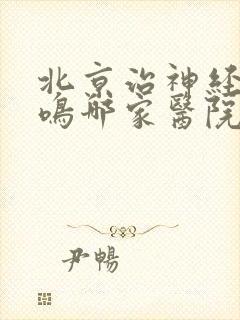 北京治神经
鸣那家醫院
尹暢